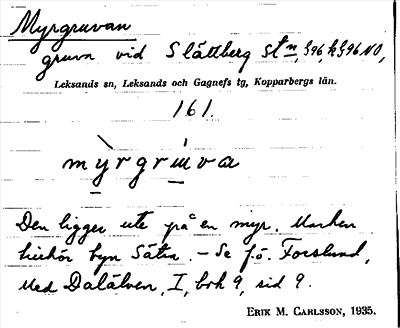 Myrgruvan
gruva vid Slättberg Stn, §96, k §96 NO,
Leksands sn, Leksands och Gagnefs tg, Kopparbergs län.
161.
mỳrgrúva
Den ligger ute på en myr. Marken
tillhör byn Sätra. – Se f.ö. Forslund,
Med Dalälven, I, bok 9, sid 9.
ERIK M. CARLSSON, 1935.